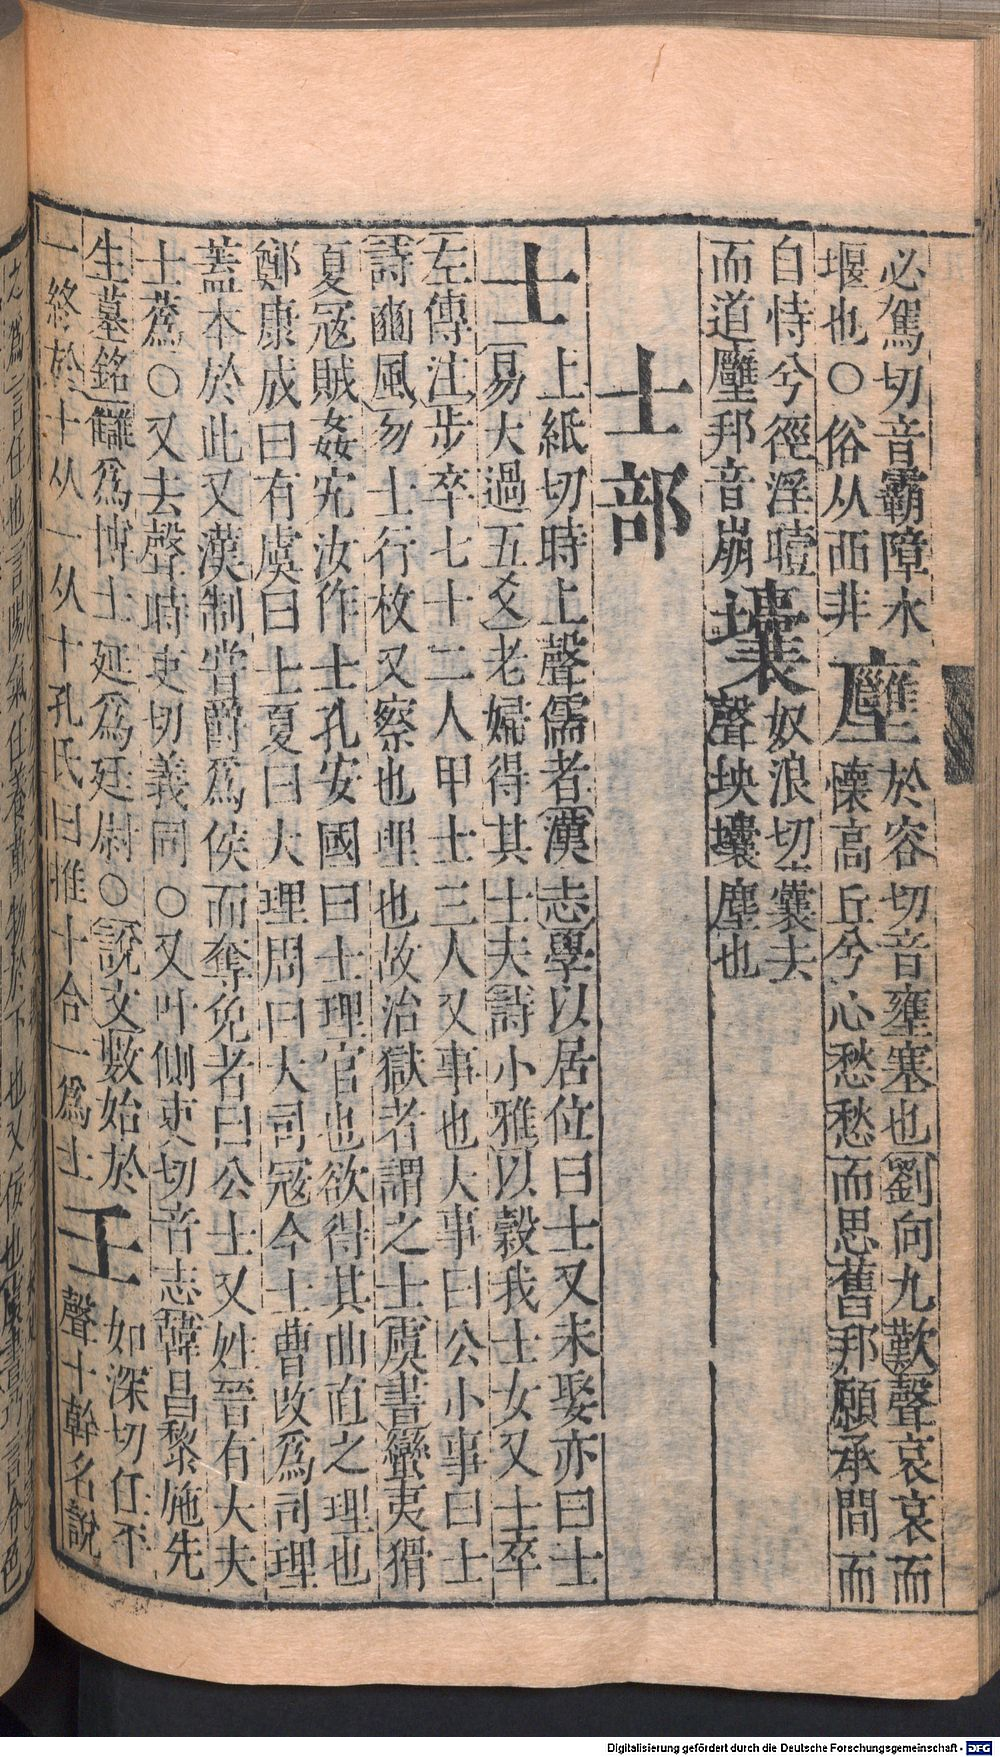 必駕切音霸障水
堰也○俗从西非
壅
於容切音壅塞也劉向九歎聲哀哀而
懷高丘兮心愁愁而思舊邦願承間而
自恃兮徑淫曀
而道壅邦音崩
壤
奴浪切囊去
聲坱壤塵也
士部
士
上紙切時上聲儒者漢志學以居位曰士又未娶亦曰士
易大過五爻老婦得其士夫詩小雅以穀我士女又士卒
左傳注步卒七十二人甲士三人又事也大事曰公小事曰士
詩豳風勿士行枚又察也理也故治獄者謂之士虞書蠻夷猾
夏寇賊姦宄汝作士孔安國曰士理官也欲得其曲直之理也
鄭康成曰有虞曰士夏曰大理周曰大司寇今士曹改爲司理
蓋本於此又漢制嘗爵爲侯而奪免者曰公士又姓晉有大夫
士蔿○又去聲時吏切義同○又叶側吏切音志韓昌黎施先
生墓銘讎爲博士延爲廷尉○說文數始於
一終於十从一从十孔氏曰推十合一爲士
壬
如深切任平
聲十幹名說
Digitalisierung gefördert durch die Deutsche Forschungsgemeinschaft - DFG